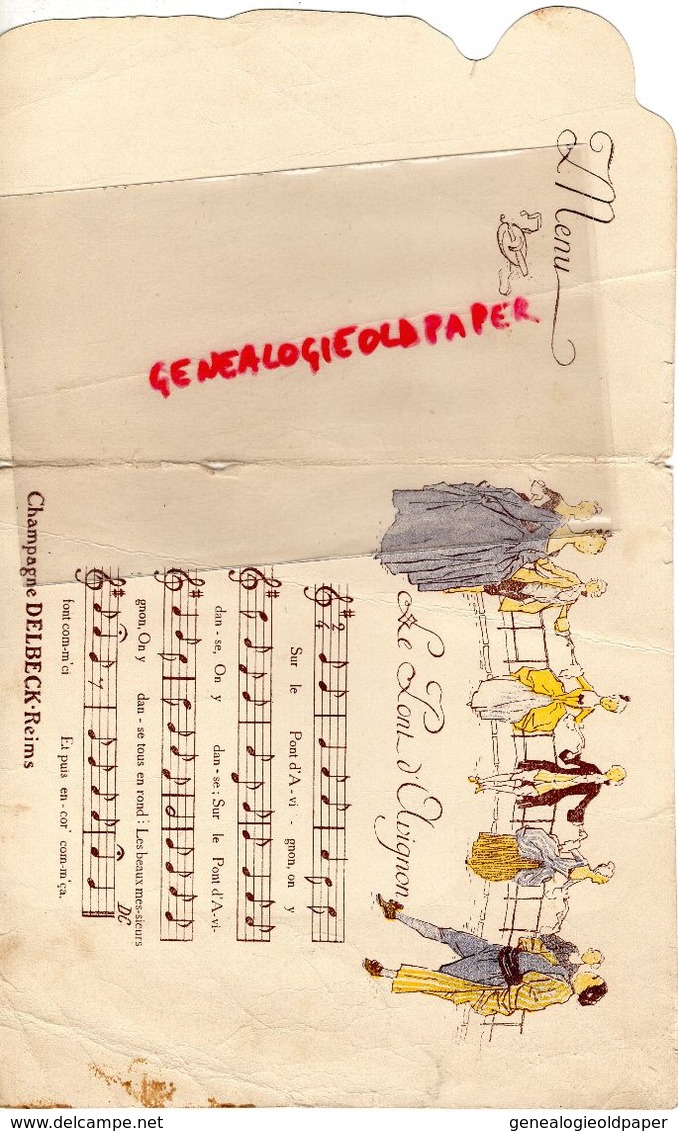 Menu
GENEALOGIEOLDPAPER
Le Pont d'Avignon
2
4
Sur le Pont d'A - vi - gnon, on y
dan - se, On y dan - se ; Sur le Pont d'A - vi-
gnon, On y dan - se tous en rond : Les beaux mes-sieurs
DC
font com-m'ci Et puis en - cor' com-m'ça.
Champagne DELBECK - Reims
www.delcampe.net
genealogieoldpaper